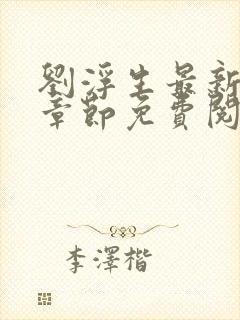 劉浮生最新
章節免費閱
李澤楷